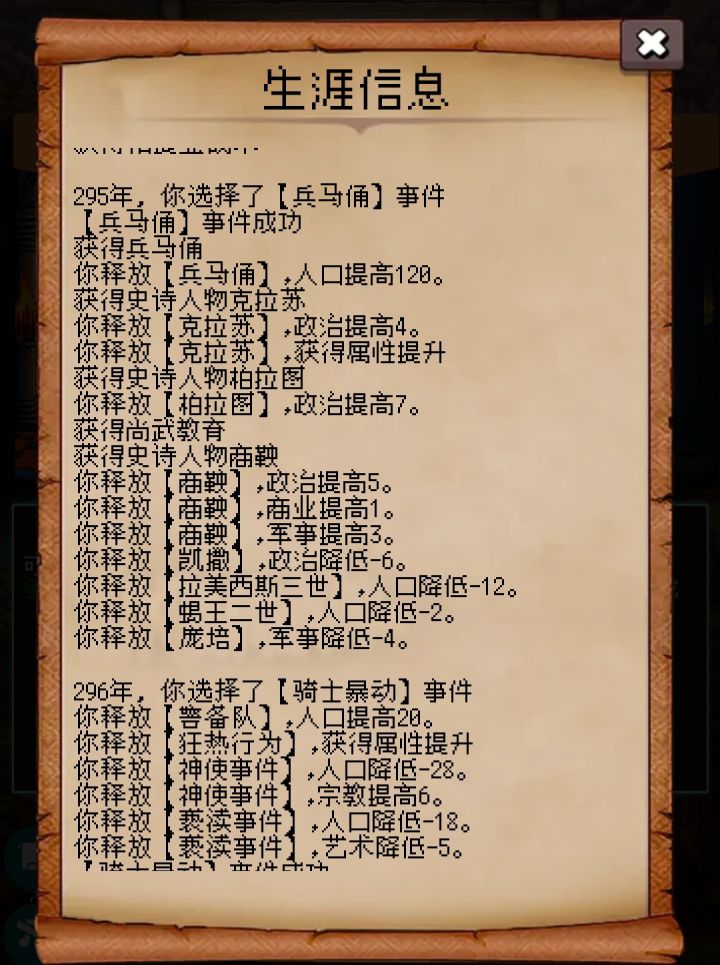 生涯信息
295年，你选择了【兵马俑】事件
【兵马俑】事件成功
获得兵马俑
你释放【兵马俑】,人口提高120。
获得史诗人物克拉苏
你释放【克拉苏】,政治提高4。
你释放【克拉苏】,获得属性提升
获得史诗人物柏拉图
你释放【柏拉图】,政治提高7。
获得尚武教育
获得史诗人物商鞅
你释放【商鞅】,政治提高5。
你释放【商鞅】,商业提高1。
你释放【商鞅】,军事提高3。
你释放【凯撒】,政治降低-6。
你释放【拉美西斯三世】,人口降低-12。
你释放【蝎王二世】,人口降低-2。
你释放【庞培】,军事降低-4。
296年，你选择了【骑士暴动】事件
你释放【警备队】,人口提高20。
你释放【狂热行为】,获得属性提升
你释放【神使事件】,人口降低-28。
你释放【神使事件】,宗教提高6。
你释放【亵渎事件】,人口降低-18。
你释放【亵渎事件】,艺术降低-5。
【骑士暴动】事件成功